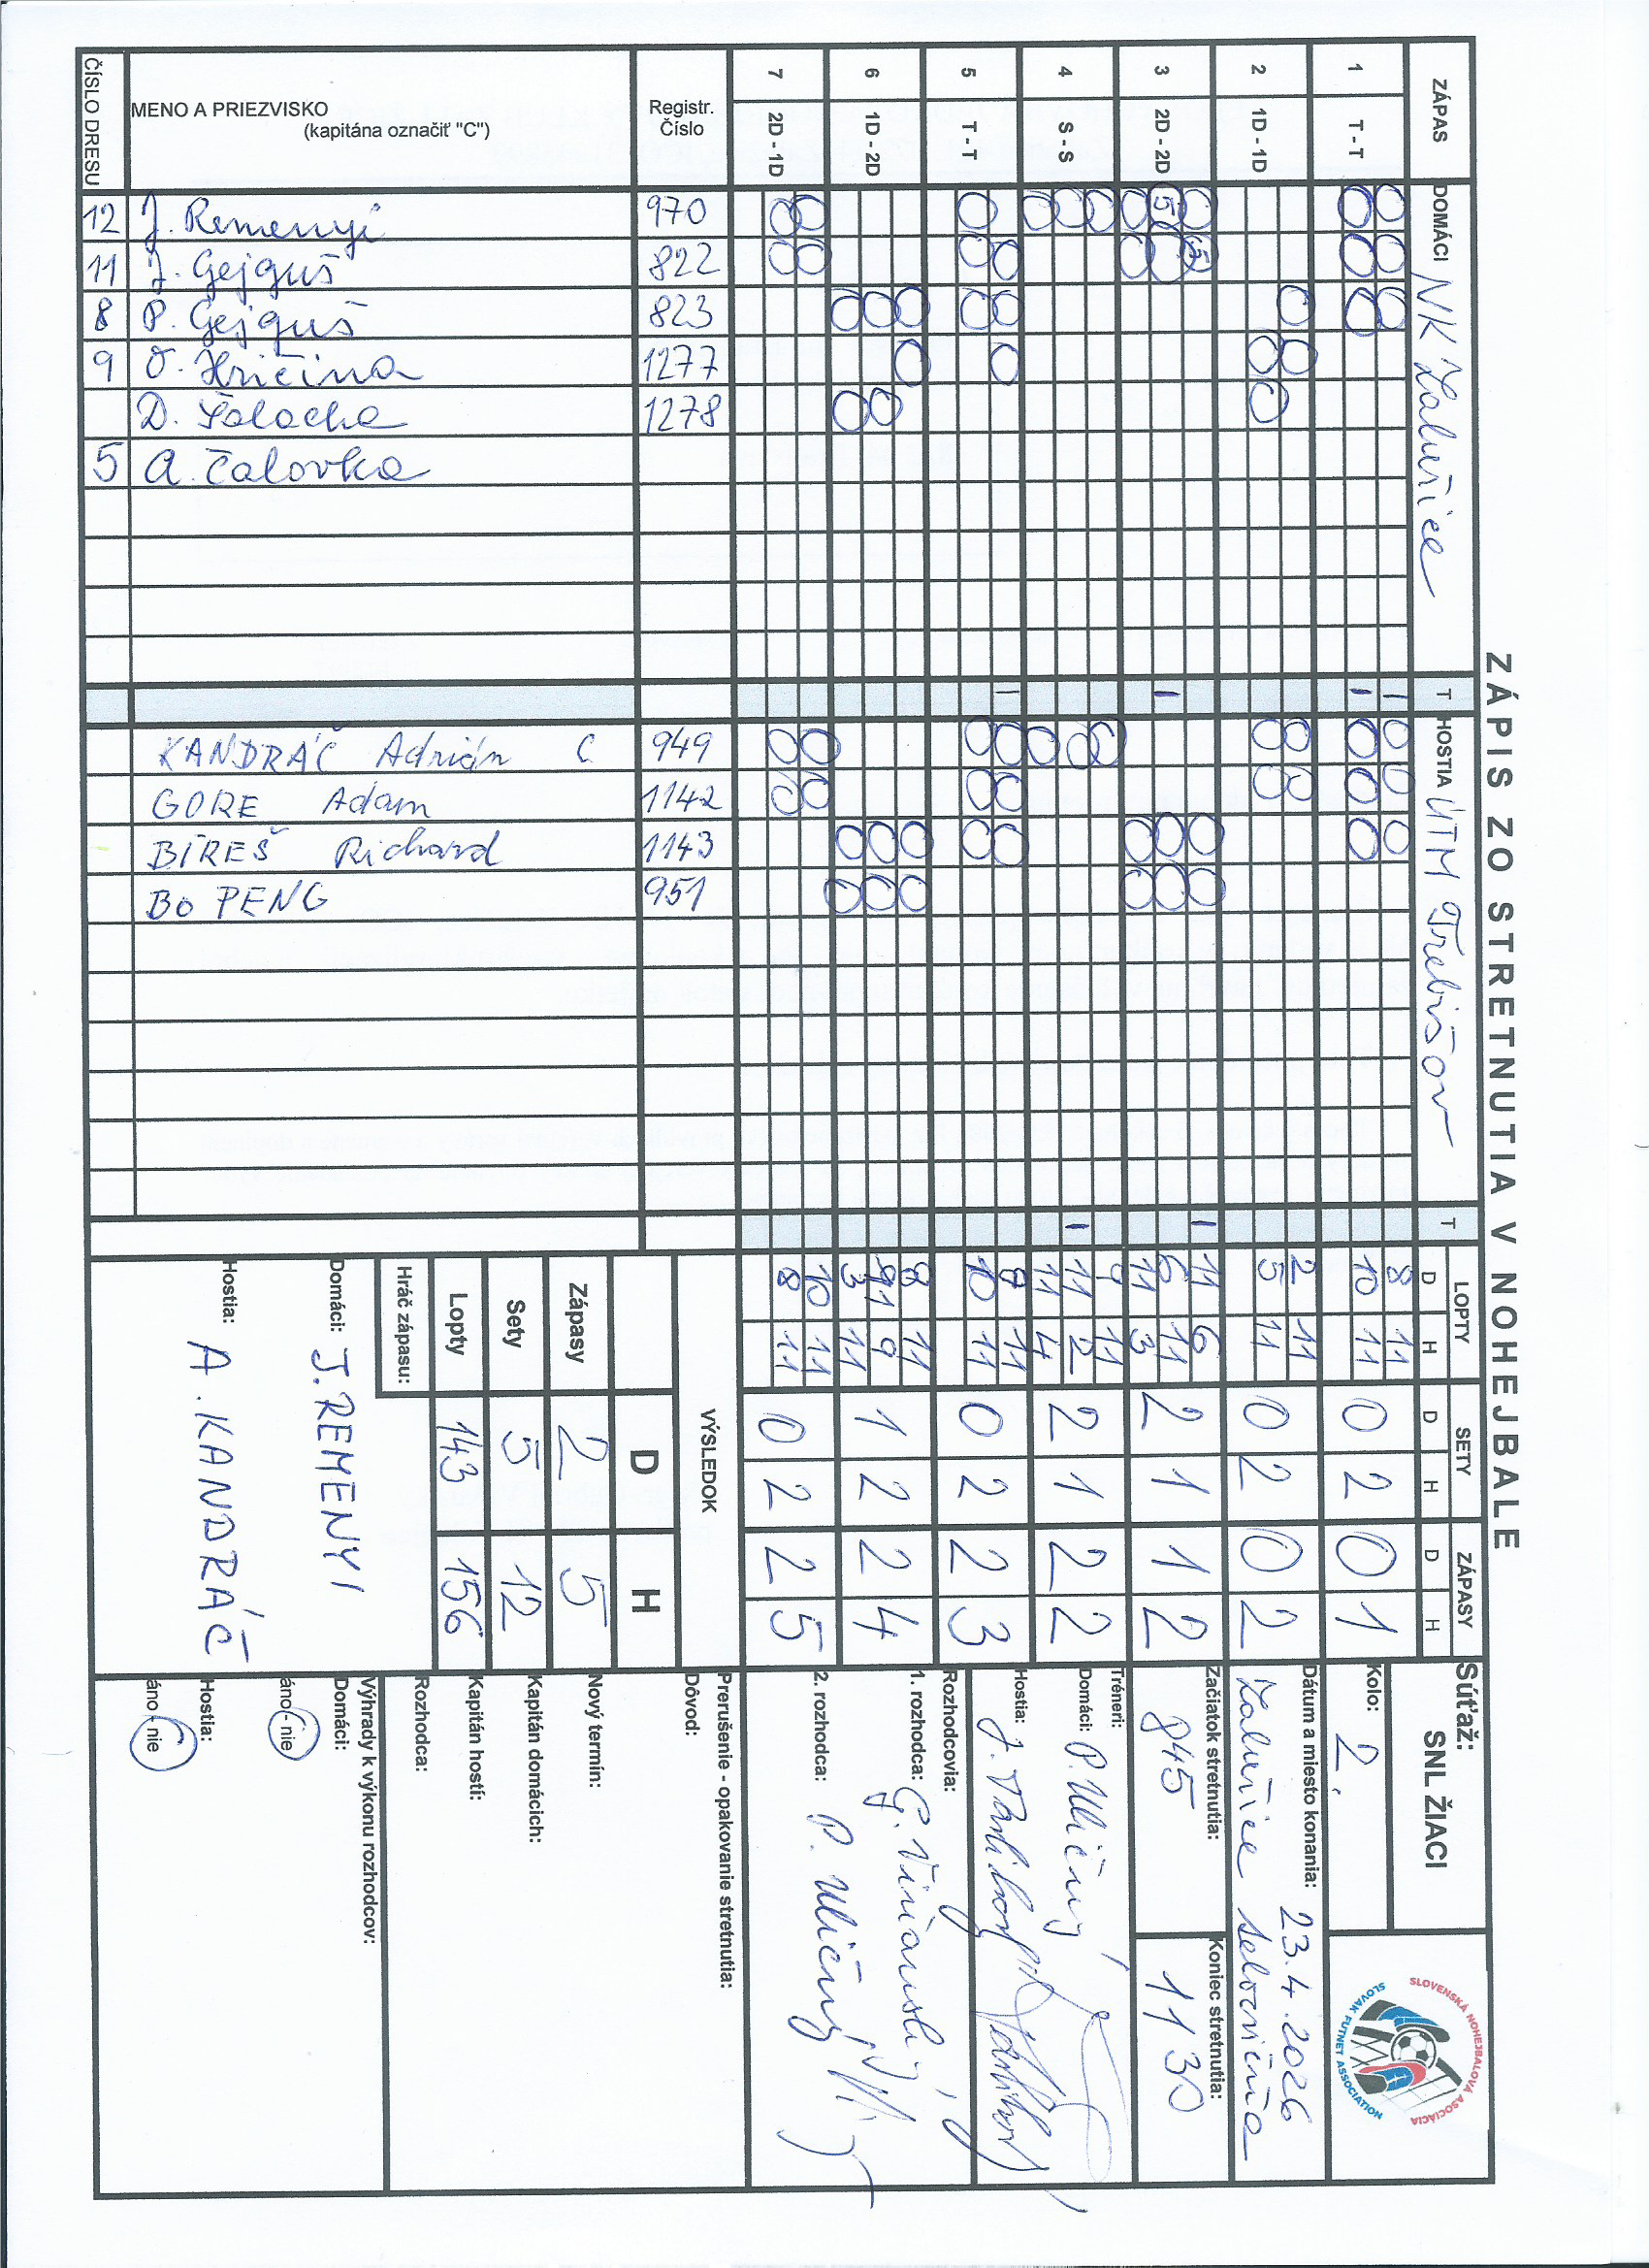 ZÁPIS ZO STRETNUTIA V NOHEJBALE
ZÁPAS
DOMÁCI NK Zalužice
T
HOSTIA UTM Trebišov
T
LOPTY
D H
SETY
D H
ZÁPASY
D H
1 T - T
8 11
10 11
0 2 0 1
2 1D - 1D
2 11
5 11
0 2 0 2
3 2D - 2D
5
5
11 6
6 11
11 3
2 1 1 2
4 S - S
9 11
11 2
11 4
2 1 2 2
5 T - T
9 11
10 11
0 2 2 3
6 1D - 2D
8 11
11 9
3 11
1 2 2 4
7 2D - 1D
10 11
8 11
0 2 2 5
Registr. Číslo
MENO A PRIEZVISKO
(kapitána označiť "C")
ČÍSLO DRESU
970 J. Remenyi 12
822 J. Gejguš 11
823 P. Gejguš 8
1277 O. Hričina 9
1278 D. Šalacha
A. Čalovka 5
949 KANDRÁČ Adrián C
1142 GORE Adam
1143 BIREŠ Richard
951 BO PENG
VÝSLEDOK
D H
Zápasy 2 5
Sety 5 12
Lopty 143 156
Hráč zápasu:
Domáci: J. REMENYI
Hostia: A. KANDRÁČ
Súťaž:
SNL ŽIACI
Kolo: 2.
Dátum a miesto konania: 23.4.2026
Zalužice telocvičňa
Začiatok stretnutia:
845
Koniec stretnutia:
1130
Tréneri:
Domáci: P. Uličný
Hostia: J.
Rozhodcovia:
1. rozhodca: G.
2. rozhodca: P. Uličný
Prerušenie - opakovanie stretnutia:
Dôvod:
Nový termín:
Kapitán domácich:
Kapitán hostí:
Rozhodca:
Výhrady k výkonu rozhodcov:
Domáci:
áno - nie
Hostia:
áno - nie
SLOVENSKÁ NOHEJBALOVÁ ASOCIÁCIA
SLOVAK FUTNET ASSOCIATION